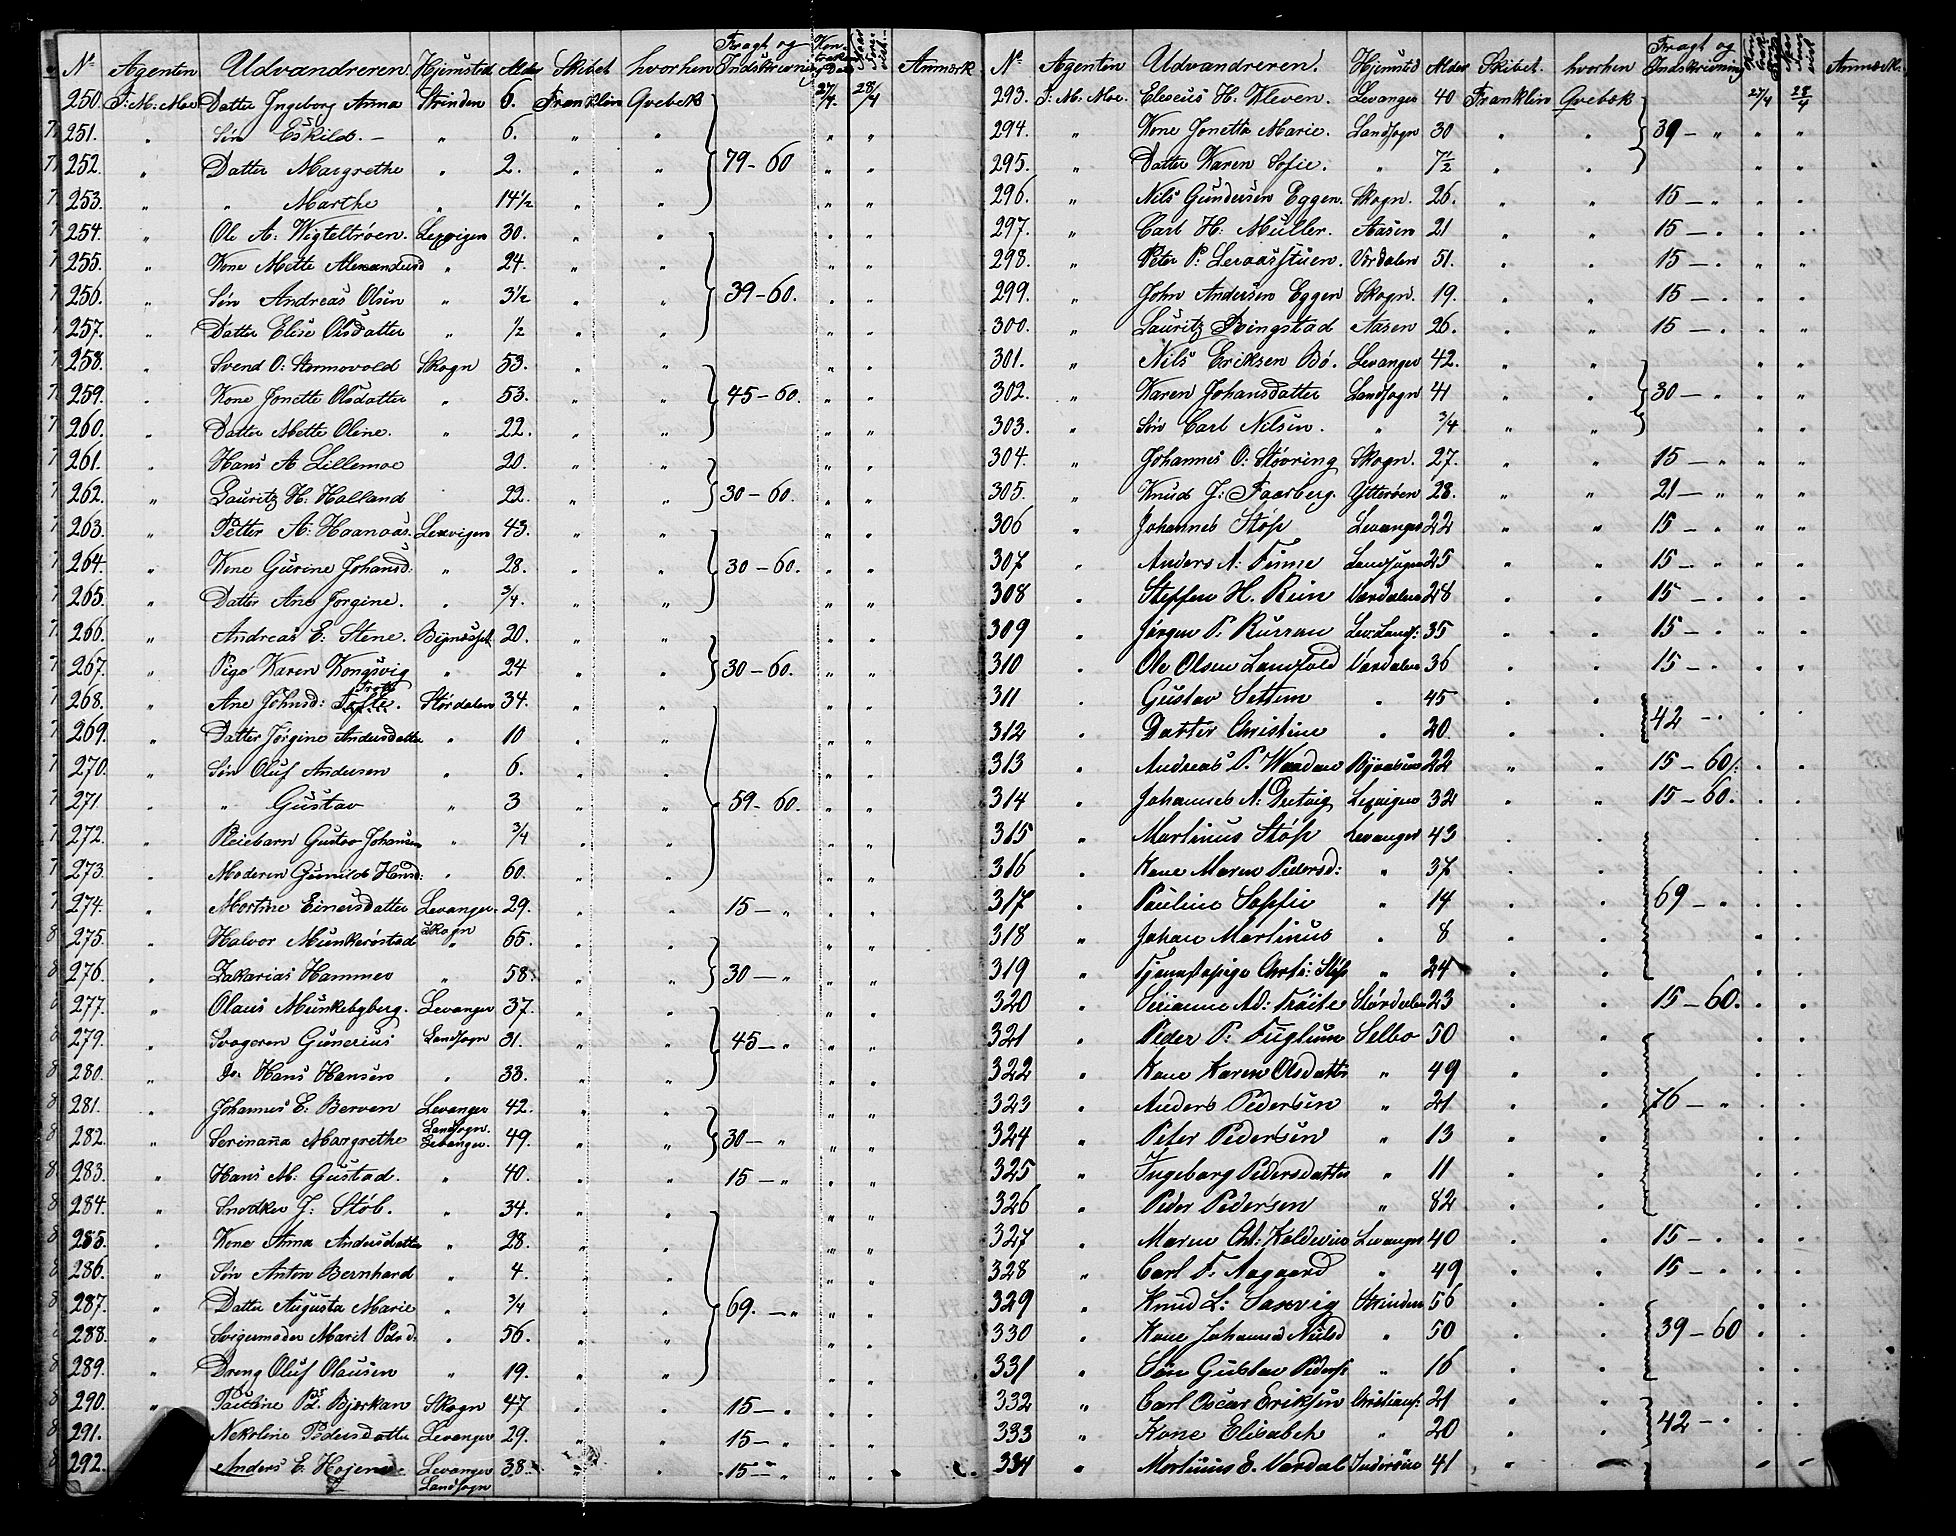 No. Agenten Udvandreren Hjemsted Alder Skibet hvorhen Fragt og Indskrivning Anmærk
250. F. M. Moe Datter Ingeborg Anna Strinden 6. Franklin Qvebek 27/4 28/4
251. " Søn Eskild. — " 6. " " " "
252. " Datter Margrethe " 2. " " 79-60 " "
253. " " Marthe " 14½ " "
254. " Ole A: Wigteltrøen. Lexvigen 30. " " " "
255. " Kone Mette Alexandersd " 24. " " " "
256. " Søn Andreas Olsen " 3½ " " 39-60. " "
257. " Datter Elise Olsdatter " ½ " " " "
258. " Svend O: Stormovold Skogn 53. " " " "
259. " Kone Jonette Olsdatter " 53. " " 45-60. " "
260. " Datter Mette Oline. " 22. " " " "
261. " Hans A Lillemoe 20. " " " "
262. " Lauritz H. Holland 22. " " 30-60. " "
263. " Petter A: Haanaas. Lexvigen 43. " " " "
264. " Kone Gurine Johansd: " 28. " " 30-60. " "
265. " Datter Ane Jorgine. " ¾. " " " "
266. " Andreas E: Stene. 20. " " " "
267. " Pige Karen Kongsvig " 24 " " 30-60. " "
268. " Ane Johnsd: Størdalen 34. " " " "
269. " Datter Jørgine Andersdatter " 10 " " " "
270. " Søn Oluf Andersen " 6. " " " "
271 " " Gustav " 3 " " 59-60. " "
272. " Pleiebarn Gustav Johansen " ¾ " " " "
273. " Moderen Gunild Hansd: " 60. " " " "
274. " Mortine Einersdatter Levanger. 29. " " 15- " " "
275. " Halvor Munkerøstad Skogn 65. " " " "
276. " Zakarias Hammer " 58. " " 30- " " "
277. " Olaus Munkebyberg. Levanger 37. " " " "
279. " Svogeren Gunerius Landsogn 31. " " 45- " " "
280. " Do. Hans Hansen " 33. " " " "
281. " Johannes E: Berven Levanger 42. " " " "
282. " Serinana Margrethe Landsogn. Levanger. 49. " " 30- " " "
283. " Hans M: Gustad. " 40. " " 15- " " "
284. " Snedker J: Støb. " 34. " " " "
285. " Kone Anna Andersdatter " 28. " " " "
286. " Søn Anton Bernhard " 4. " " " "
287. " Datter Augusta Marie " ¾ " " 69. - " " "
288. " Svigermoder Marit Pdsd: " 56. " " " "
289. " Dreng Oluf Olausen " 19. " " " "
290. " Pauline Pd. Bjerkan Skogn 47 " " 15- " " "
291. " Nekoline Pedersdatter Levanger 29. " " 15- " " "
292. Anders E. Hojem Levanger Landsogn 38. " " 15- " " "
No. Agenten Udvandreren. Hjemsted Alder Skibet. hvorhen Fragt og Indskrivning Anmærk.
293. F. M. Moe. Eleseus H: Kleven. Levanger 40 Franklin Qvebek 27/4 28/4
294. " Kone Jonetta Marie. Landsogn 30 " " 39- " " "
295. " Datter Karen Sofie. " 7½ " " " "
296. " Nils Gundersen Eggen. Skogn. 26. " " 15- " " "
297. " Carl H: Müller. Aasen 21 " " 15- " " "
298. " Peter P: Leraasstuen. Værdalen 51. " " 15- " " "
299. " John Andersen Eggen Skogn. 19. " " 15- " " "
300. " Lauritz Ravingstad Aasen 26. " " 15- " " "
301. " Nils Eriksen Bø. Levanger 42. " " " "
302. " Karen Johansdatter Landsogn 41 " " 30- " " "
303. " Søn Carl Nilsen. " ¾ " " " "
304. " Johannes O: Støvring Skogn. 27. " " 15- " " "
305. " Knud J: Faarberg. Ytterøen 28. " " 21- " " "
306 " Johannes Støp Levanger 22 " " 15- " " "
307 " Anders A: Finne Landsogn 25 " " 15- " " "
308 " Steffen H. Rein Værdalen 28 " " 15- " " "
309 " Jørgen P. Russan Lev: Lands: 35 " " 15- " " "
310 " Ole Olsen Landfald Værdalen 36 " " 15- " " "
311 " Gustav Settem " 45 " "
312 " Datter Christine " 20. " " 42- " " "
313 " Andreas P. Waadan 22 " " 15-60. " "
314 " Johannes A: Lexvigen 32 " " 15-60. " "
315 " Martinus Støp Levanger 43 " " " "
316 " Kone Maren Pedersd: " 37 " " " "
317 " Pauline Soffie " 14 " " 69- " " "
318 " Johan Martinus " 8 " " " "
319 " Tjenestepige " 24 " " " "
320 " Størdalen 23 " " 15-60. " "
321 " Peder P: Fuglum Selbo 50 " " " "
322 " Kone Karen Olsdatter " 49 " " " "
323 " Anders Pedersen " 21 " " 76- " " "
324 " Peter Pedersen " 13 " " " "
325 " Ingeborg Pedersdatter " 11 " " " "
326 " Peder Pedersen " 82 " " " "
327 " Maren Levanger 40 " " 15- " " "
328 " Carl F. Aagaard " 49 " " 15- " " "
329 " Knud L: Saxvig Strinden 56 " " " "
330 " Kone Johanna Nielsd " 50 " " 39-60 " "
331 " Søn Gustav Peders: " 16 " " " "
332 " Carl Oscar Eriksen Christians: 21 " " " "
333 " Kone Elisabeh " 20 " " 42- " " "
334 " Martinus E. Værdal Inderøen 41 " " " "